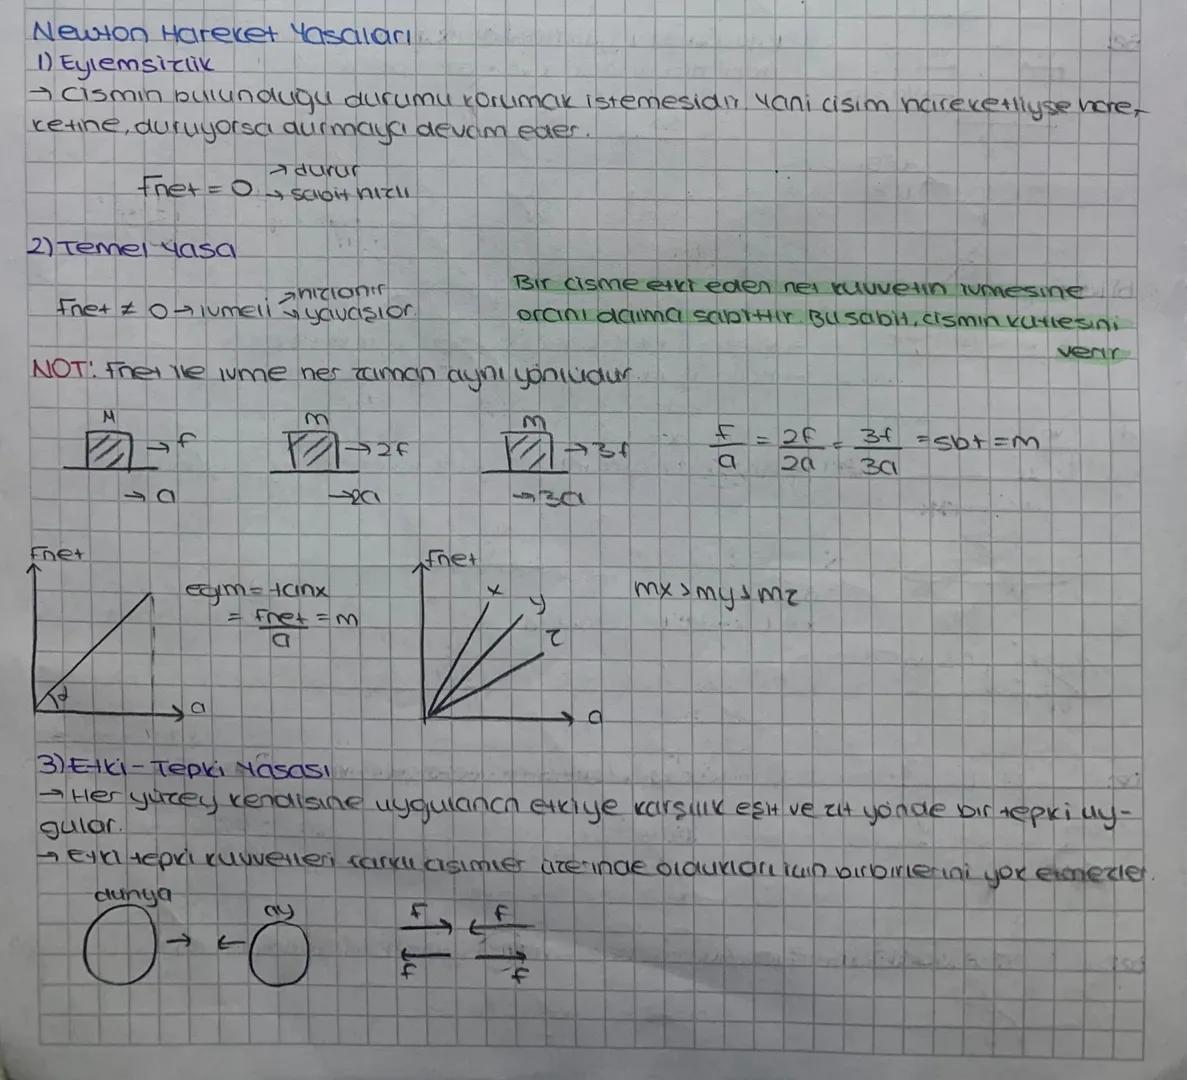 Newton Hareket Yasaları
1) Eylemsizlik
→ Cismin bulunduğu durumu korumak istemesidir. Yani cisim hareketliyse hare-
ketine, duruyorsa durmaya devam eder.
→ durur
Fnet = 0 → sabit hızlı
2) Temel Yasa
→ hızlanır
Fnet ≠ 0 → ivmeli → yavaşlar
Bir cisme etki eden net kuvvetin ivmesine
oranı daima sabittir. Bu sabit, cismin kütlesini
verir
NOT: Fnet ile ivme her zaman aynı yönlüdür.
M → F → a
m → 2F → 2a
m → 3F → 3a
F/a = 2F/2a = 3F/3a = sbt = m
Fnet
eğim = tanx
= Fnet/a = m
α
a
Fnet
x
y
z
a
mx > my > mz
3) Etki - Tepki Yasası
→ Her yüzey kendisine uygulanan etkiye karşılık eşit ve zıt yönde bir tepki uy-
gular.
→ Etki tepki kuvvetleri farklı cisimler üzerinde oldukları için birbirlerini yok etmezler.
dünya
ay
F F
F F